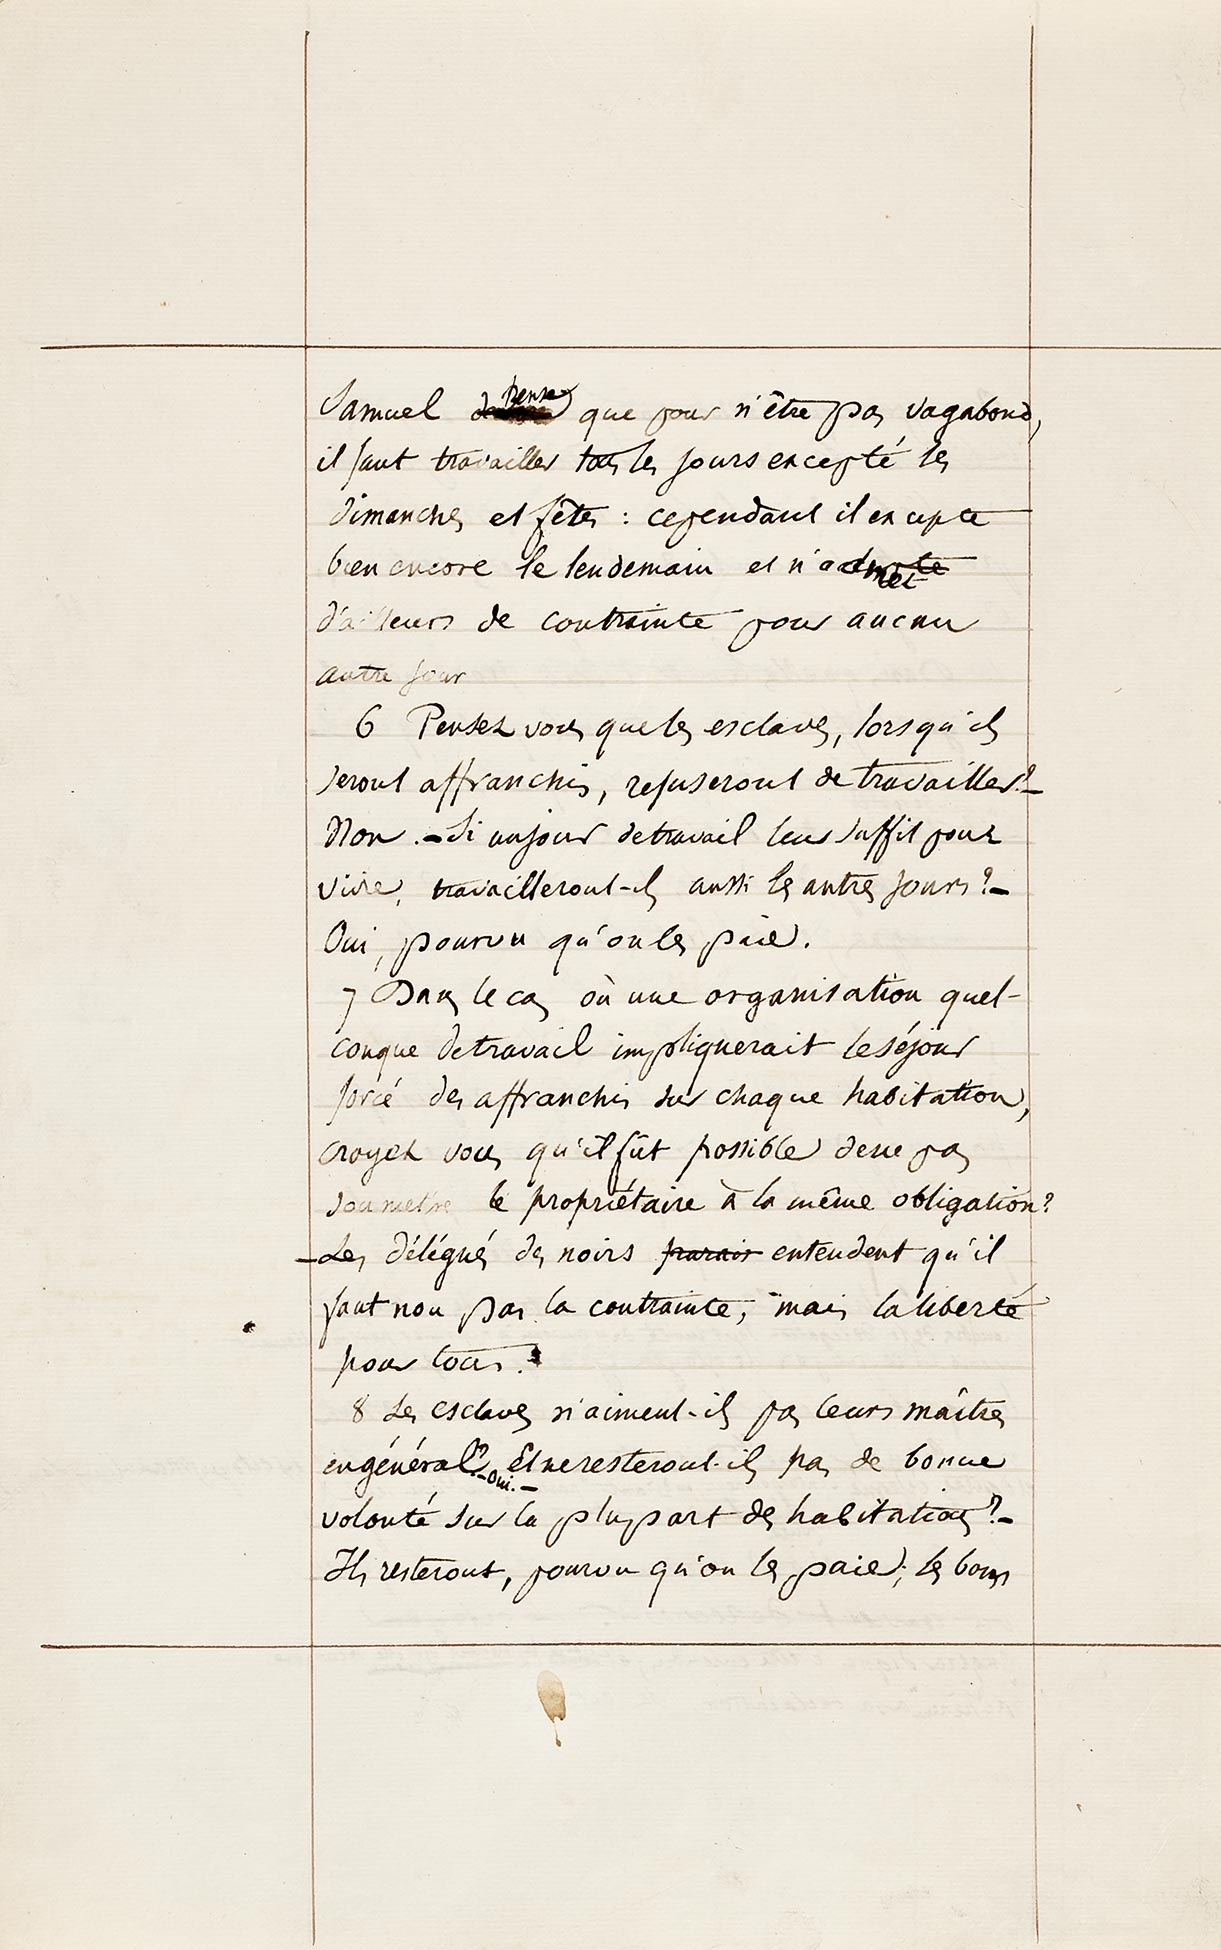 Samuel pense que pour n'être pas vagabond,
il faut travailler tous les jours excepté les
dimanches et fêtes : cependant il excepte
bien encore le lendemain et n'admet
d'ailleurs de contrainte pour aucun
autre jour
6 Pensez vous que les esclaves, lorsqu'ils
seront affranchis, refuseront de travailler? –
Non. – Si un jour de travail leur suffit pour
vivre, travailleront-ils aussi les autres jours? –
Oui, pourvu qu'on les paie.
7 Dans le cas où une organisation quel-
conque de travail impliquerait le séjour
forcé des affranchis sur chaque habitation,
croyez vous qu'il fût possible de ne pas
soumettre le propriétaire à la même obligation?
– Les délégués des noirs parair entendent qu'il
faut non pas la contrainte, mais la liberté
pour tous.
8 Les esclaves n'aiment-ils pas leurs maîtres
en général? – Oui. – Et ne resteront-ils pas de bonne
volonté sur la plupart des habitations? –
Ils resteront, pourvu qu'on les paie; les bons